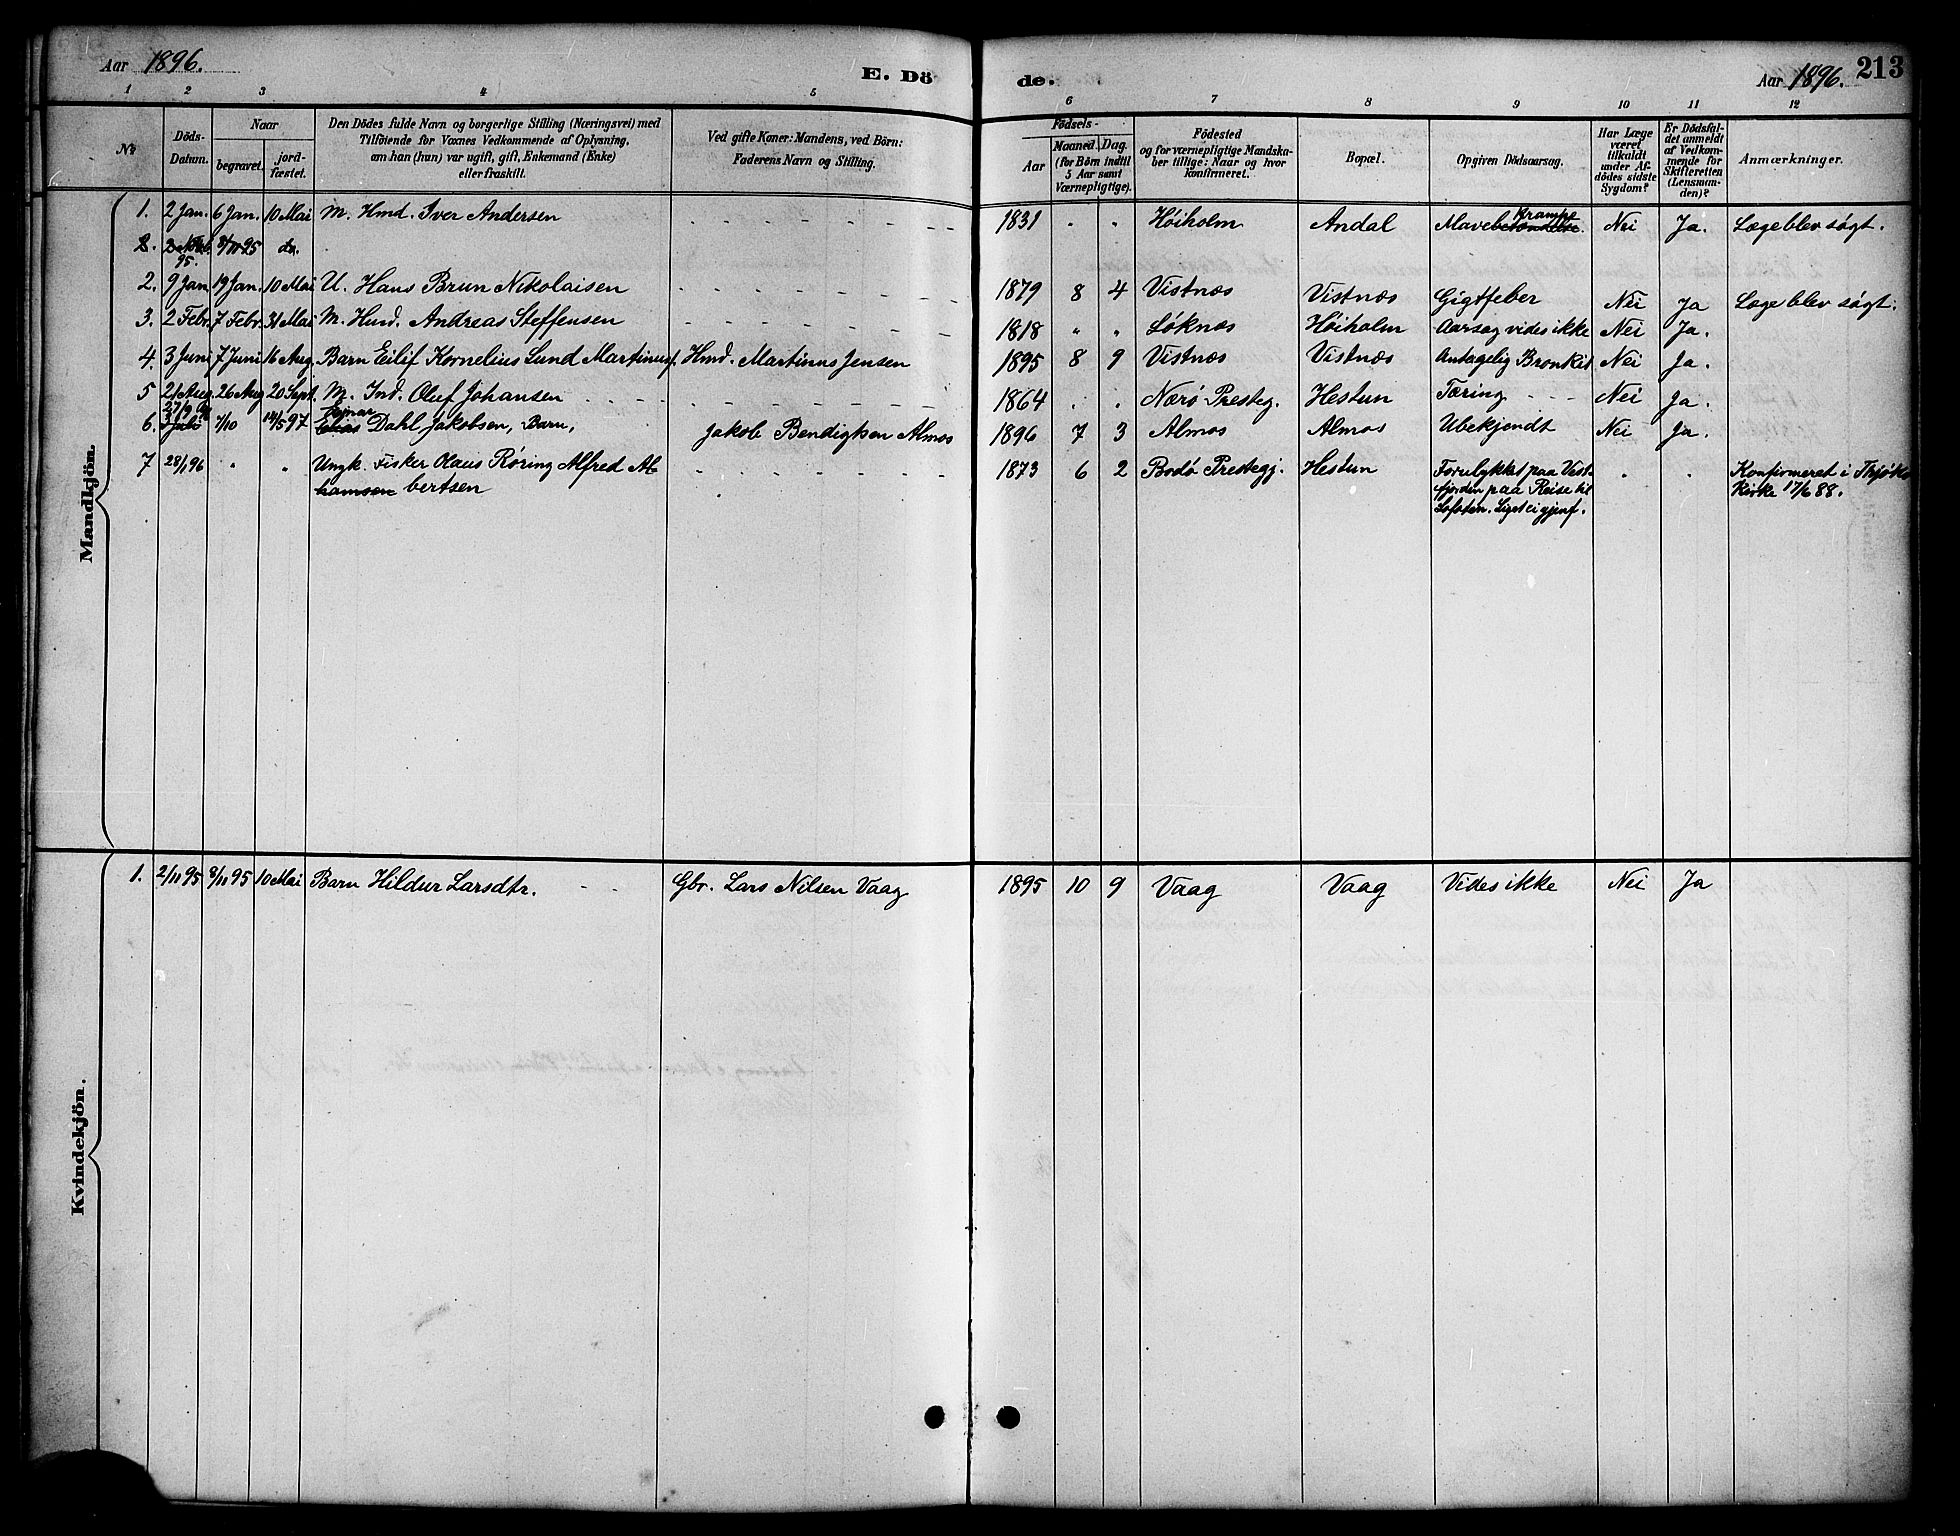 Aar 1896.
E. Dö de.
Aar 1896. 213
1 2 3 4 5 6 7 8 9 10 11 12
No.
Döds-Datum.
Naar
begravet.
jord-fæstet.
Den Dödes fulde Navn og borgerlige Stilling (Næringsvei) med
Tilföiende for Voxnes Vedkommende af Oplysning,
om han (hun) var ugift, gift, Enkemand (Enke)
eller fraskilt.
Ved gifte Koner: Mandens, ved Börn:
Faderens Navn og Stilling.
Födsels-
Aar
Maaned. Dag.
(for Börn indtil
5 Aar samt
Værnepligtige).
Födested
og for værnepligtige Mandska-
ber tillige: Naar og hvor
konfirmeret.
Bopæl.
Opgiven Dödsaarsag.
Har Læge
været
tilkaldt
under Af-
dödes sidste
Sygdom?
Er Dödsfal-
det anmeldt
af Vedkom-
mende for
Skifteretten
(Lensman-
den)?
Anmærkninger.
Mandkjön.
1. 2 Jan. 6 Jan. 10 Mai M. Hmd. Iver Andersen 1831 " " Høiholm Andal Mavebetændelse Krampe Nei Ja. Læge blev søgt.
2. 95. 8/11 95 do.
2. 9 Jan 19 Jan. 10 Mai U. Hans Brun Nikolaisen 1879 8 4 Vistnæs Vistnæs Gigtfeber Nei Ja Læge blev søgt.
3. 2 Febr. 7 Febr. 31 Mai M. Hmd. Andreas Steffensen 1818 " " Løknæs Høiholm Aarsag vides ikke Nei Ja.
4. 3 Juni 7 Juni 16 Aug. Barn Eilif Kornelius Lund Martinus. Hmd. Martinus Jensen 1895 8 9 Vistnæs Vistnæs Antagelig Bronkit Nei Ja.
5 21 Aug. 26 Aug 20 Sept. M. Ind. Oluf Johansen 1864 " " Nærø Presteg. Hestun Tæring Nei Ja.
6. 27/9 3 Juli 1/10 14/5 97 Ejnar Elias Dahl Jakobsen, Barn, Jakob Bendigtsen Almos 1896 7 3 Almos Almos Ubekjendt Nei Ja.
7 28/1 96 " " Ungk. Fisker Olaus Røring Alfred Ab 1873 6 2 Bodø Prestegj. Hestun Forulykket paa Vest- " " Konfirmeret i Thjøtta
hamsen bertsen fjorden paa Reise til Kirke 17/6 88.
Lofoten. Liget ei gjenf.
Kvindekjön.
1. 2/11 95 8/11 95 10 Mai Barn Hildur Larsdtr. Gbr. Lars Nilsen Vaag 1895 10 9 Vaag Vaag Vides ikke Nei Ja